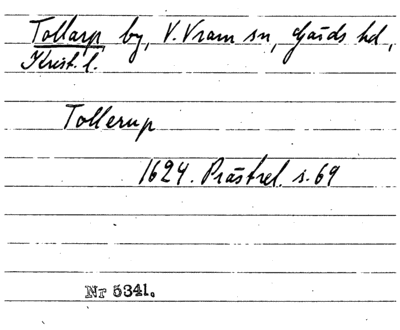 Tollarp by, V. Vram sn, Gärds hd,
Krist. l.
Tollerup
1624. Prästrel. s. 69
Nr 5341.